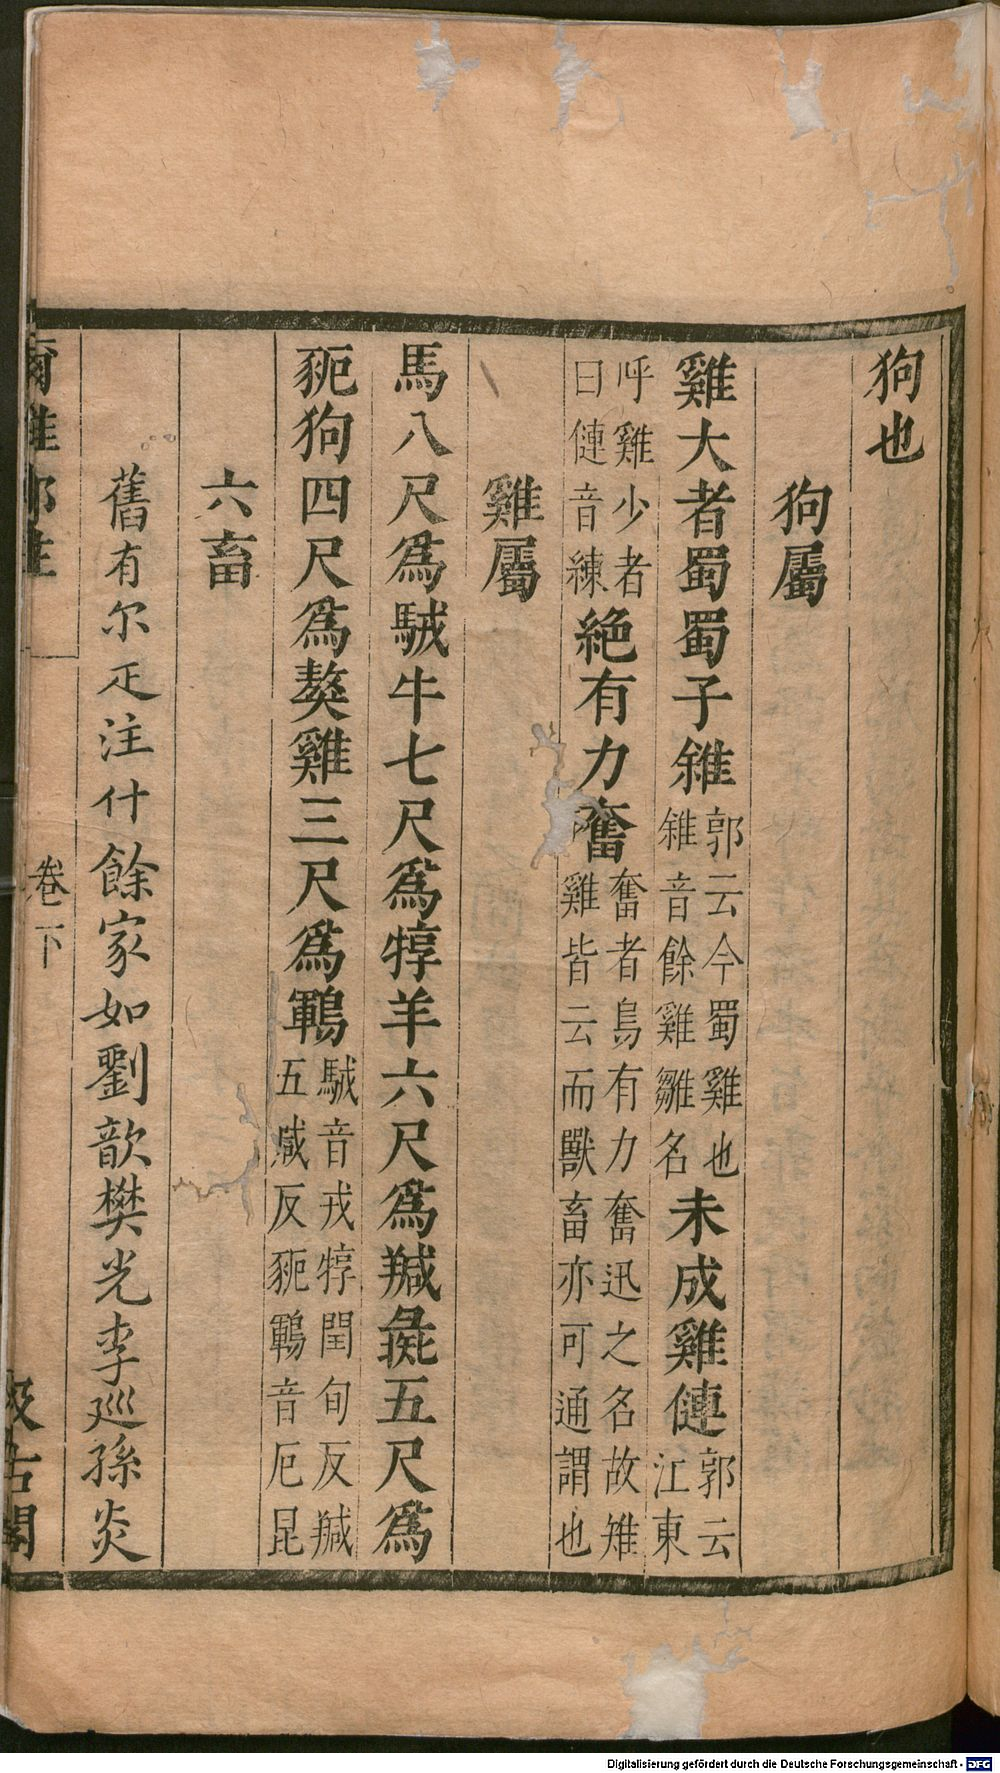 狗也
狗屬
雞大者蜀蜀子雓郭云今蜀雞也雓音餘雞雛名未成雞僆郭云江東
呼雞少者曰僆音練絕有力奮奮者鳥有力奮迅之名故雉雞皆云而獸畜亦可通謂也
雞屬
馬八尺爲駥牛七尺爲犉羊六尺爲羬彘五尺爲
豟狗四尺爲獒雞三尺爲鶤駥音戎犉閏旬反羬五咸反豟鶤音厄昆
六畜
舊有尔疋注什餘家如劉歆樊光李巡孫炎
爾雅鄭注
卷下
汲古閣
Digitalisierung gefördert durch die Deutsche Forschungsgemeinschaft - DFG